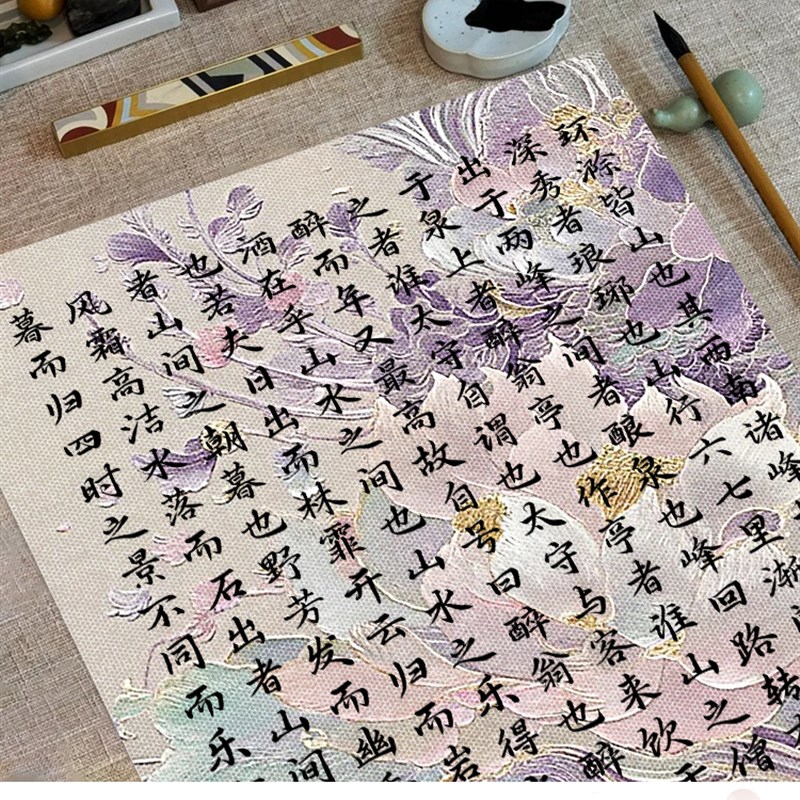 环滁皆山也其西南诸峰
深秀者琅琊也山行六七里渐
出于两峰之间者酿泉也峰回路转
于泉上者醉翁亭也作亭者谁山之僧
之者谁太守自谓也太守与客来饮于
醉而年又最高故自号曰醉翁也醉
酒在乎山水之间也山水之乐得
也若夫日出而林霏开云归而岩
者山间之朝暮也野芳发而幽
风霜高洁水落而石出者山间
暮而归四时之景不同而乐